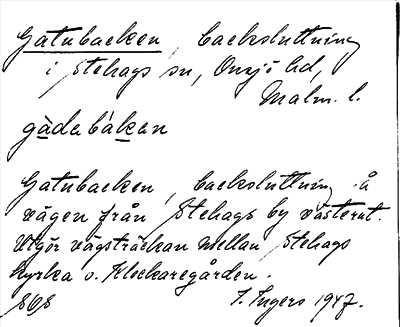 Gatubacken, backsluttning
i Stehags sn, Onsjö hd,
Malm. l.
gàdabákan
Gatubacken, backsluttning å
vägen från Stehags by västerut.
Utgör vägsträckan mellan Stehags
kyrka o. Klockaregården.
I. Ingers 1947.